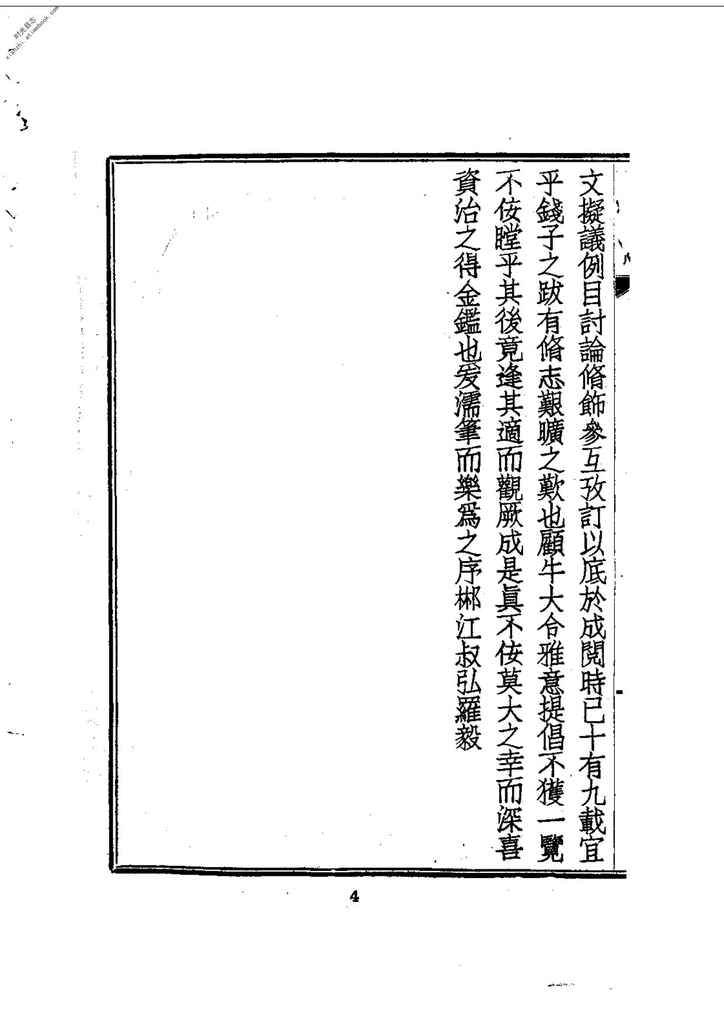 时光县志
文擬議例目討論脩飾參互攷訂以底於成閱時已十有九載宜
乎錢子之跋有脩志艱曠之歎也顧牛大合雅意提倡不獲一覽
不侒瞠乎其後竟逢其適而觀厥成是眞不侒莫大之幸而深喜
資治之得金鑑也爰濡筆而樂爲之序郴江叔弘羅毅
4